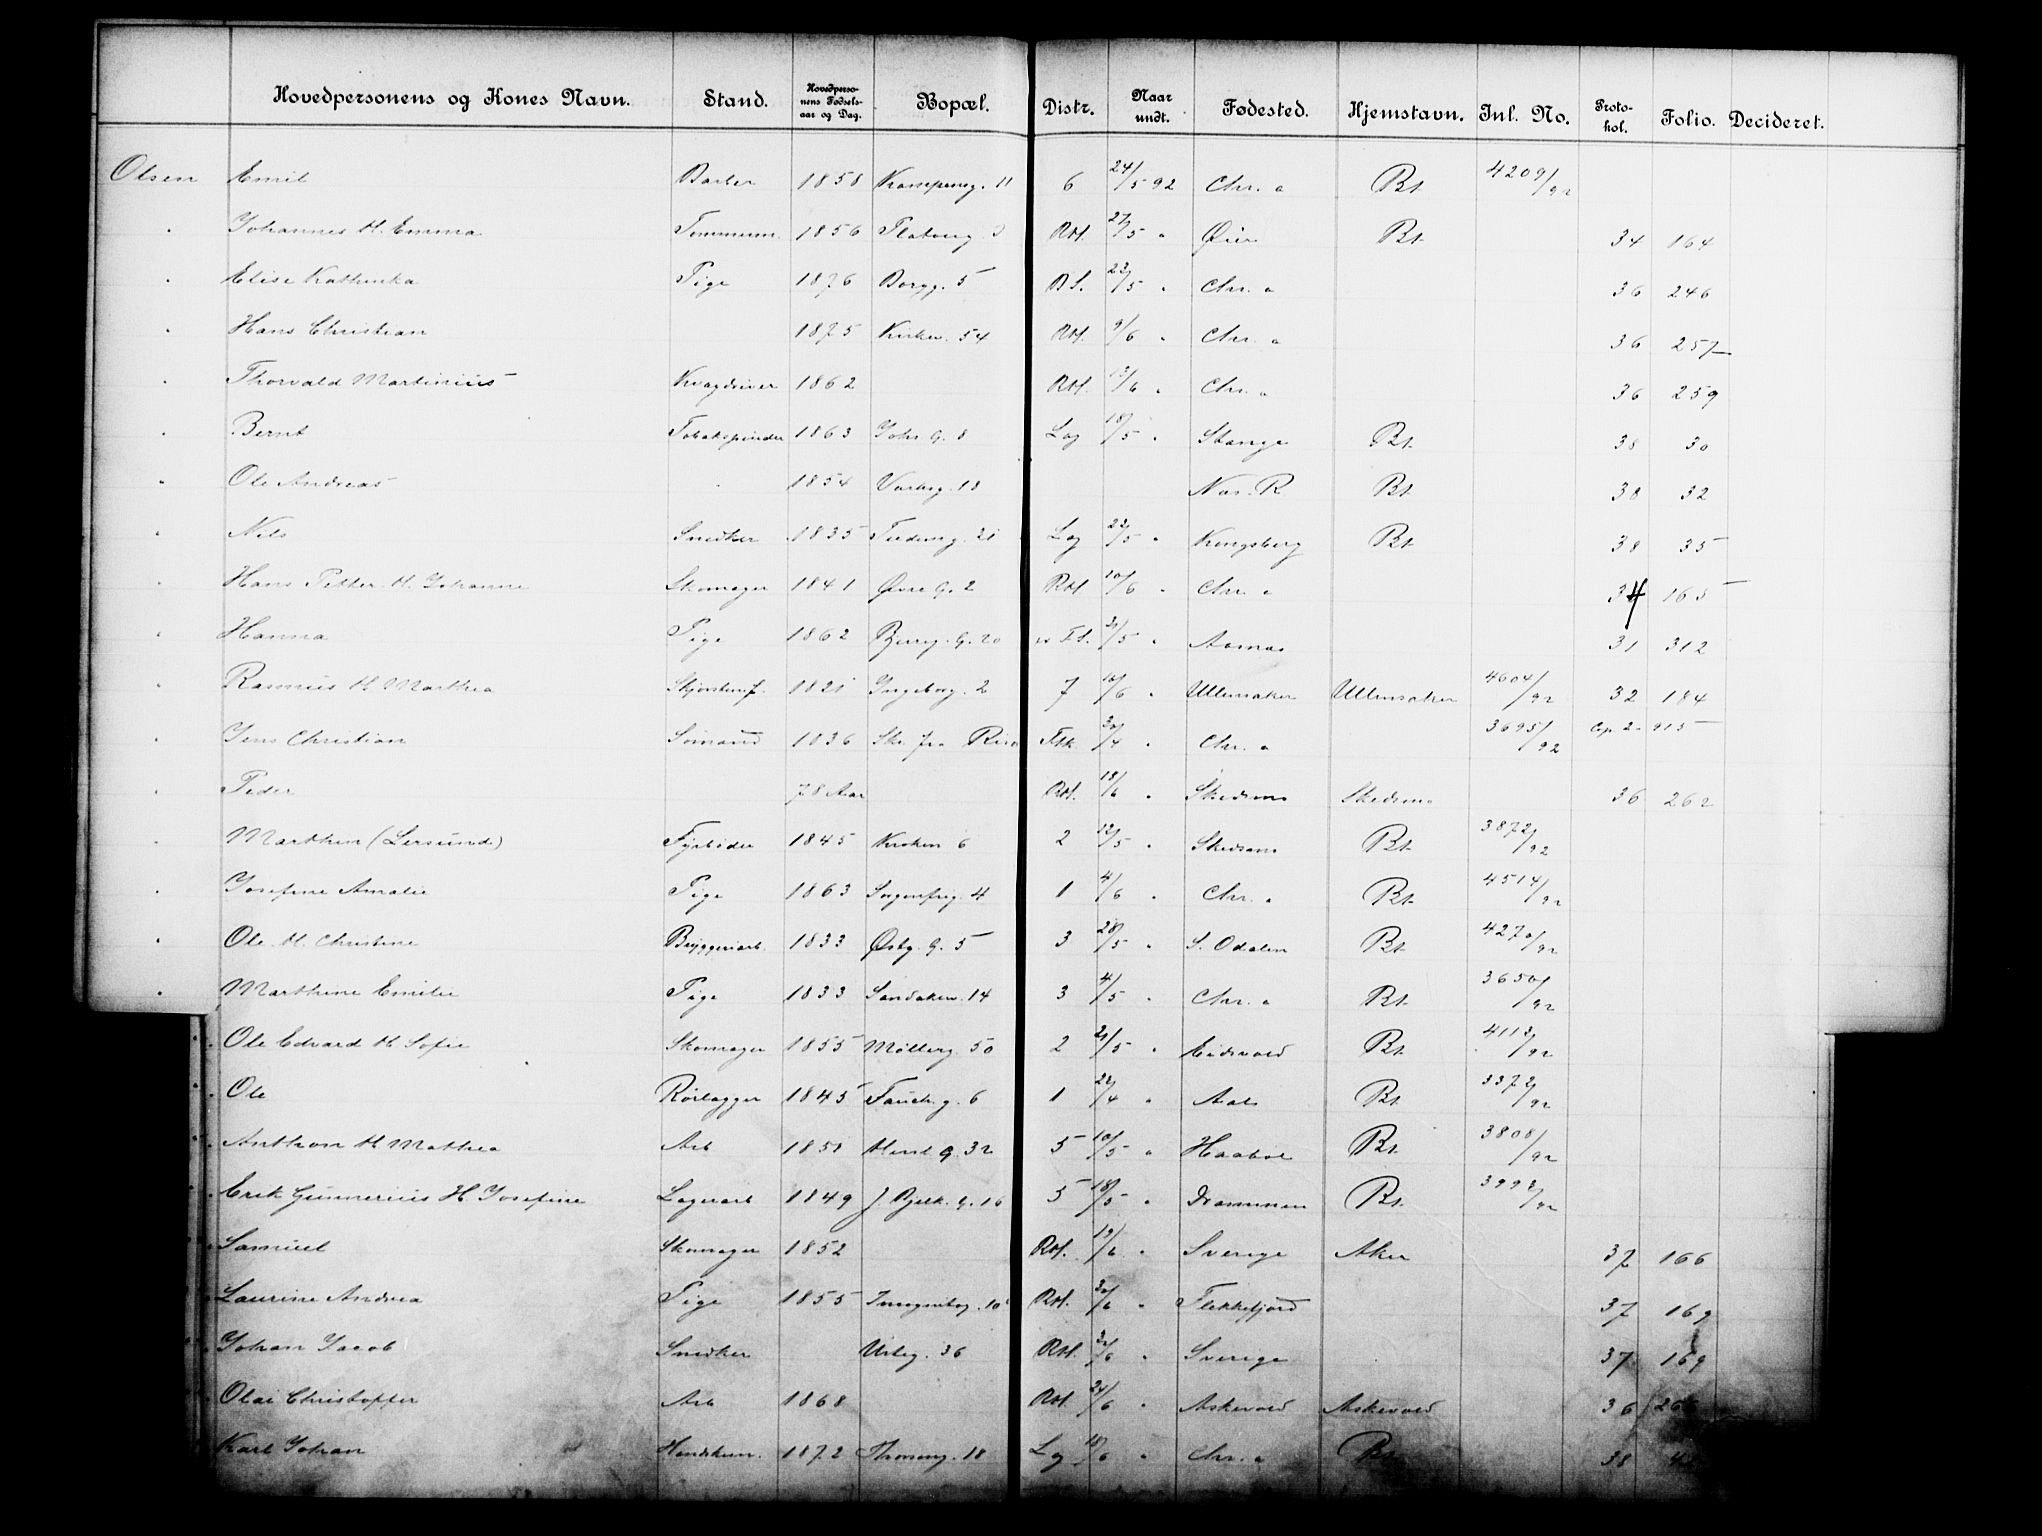 Hovedpersonens og Kones Navn. Stand. Hovedpersonens Fødselsaar og Dag. Bopæl. Distr. Naar undt. Fødested. Hjemstavn. Inl. No. Protokol. Folio. Decideret.
Olsen Emil Barber 1858 11 6 24/5 92 Chr.a Bt 4209/92
" Johannes H. Emma Tømmerm. 1856 Rtf. 27/5 " Øier Bt 34 164
" Elise Kathinka Pige 1876 Borgg. 5 23/5 " Chr.a 36 246
" Hans Christian 1875 Kirkev. 54 Rtf. 9/6 " Chr.a 36 257
" Thorvald Martinius Kvægdriver 1862 Rtf. 13/6 " Chr.a 36 259
" Bernt Tobakspinder 1863 Johs G. 8 Lag 18/5 " Stange Bt 38 30
" Ole Andreas " 1854 18 Næs. R Bt 38 32
" Nils Snedker 1835 Tordensg. 21 Lag 22/5 " Kongsberg Bt 38 35
" Hans Petter H. Johanne Skomager 1841 Øvre G. 2 Rtf 10/6 " Chr.a 34 165
" Hanna Pige 1862 G. 20 /5 " Aasnæs 31 312
" Rasmus H Marthea Skjorstensf. 1821 Ingeborg. 2 7 10/6 " Ullensaker Ullensaker 4604/92 32 184
" Jens Christian Sømand 1836 Skr. fra 30/4 " Chr.a 3695/92 Cop. 2 - 915
" Peder 78 Aar Rtf. 18/6 " Skedsmo Skedsmo 36 262
" Marthin (Lersund) Fyrbøder 1845 Kroken 6 2 12/5 " Skedsmo Bt 3872/92
" Josefine Amalie Pige 1863 Sorgenfrig. 4 1 4/6 " Chr.a Bt 4514/92
" Ole H. Christine Bryggeriarb. 1833 Østby G. 5 3 28/5 " S. Odalen Bt 4270/92
" Marthine Emilie Pige 1833 Sandakerv. 14 3 4/5 " Chr.a Bt 3650/92
" Ole Edvard H Sofie Skomager 1855 Møllerg. 50 2 21/5 " Eidsvold Bt 4113/92
" Ole Rørlægger 1845 Fauch. g. 6 1 22/4 " Aals Bt 3372/92
" Anthon H Mathea Arb 1851 G. 32 5 10/5 " Haabøl Bt 3808/92
" Erik Gunnerius H Josefine Lagerarb 1849 J. Bjelk. G. 16 5 18/5 " Drammen Bt 3992/92
" Samuel Skomager 1852 Rtf. 19/6 " Sverige Aker 37 166
" Laurine Andrea Pige 1855 Rtf. 20/6 " Flekkefjord 37 169
" Johan Jacob Snedker Urteg. 36 Rtf. /6 " Sverige 37 169
" Olai Christoffer Arb 1868 Rtf 24/6 " Askevold Askevold 36
" Karl Johan Handskem. 1872 18 Lag 18/6 " Chr.a Bt 38